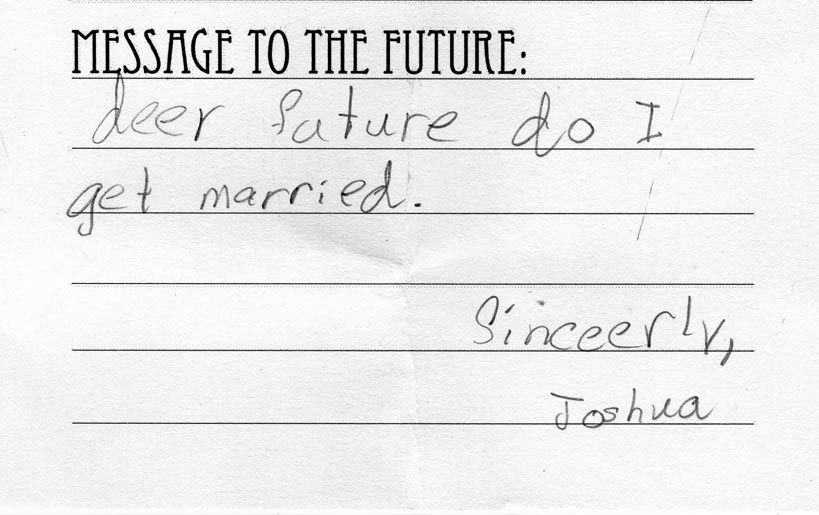 MESSAGE TO THE FUTURE:
deer future do I
get married.
Sinceerly,
Joshua